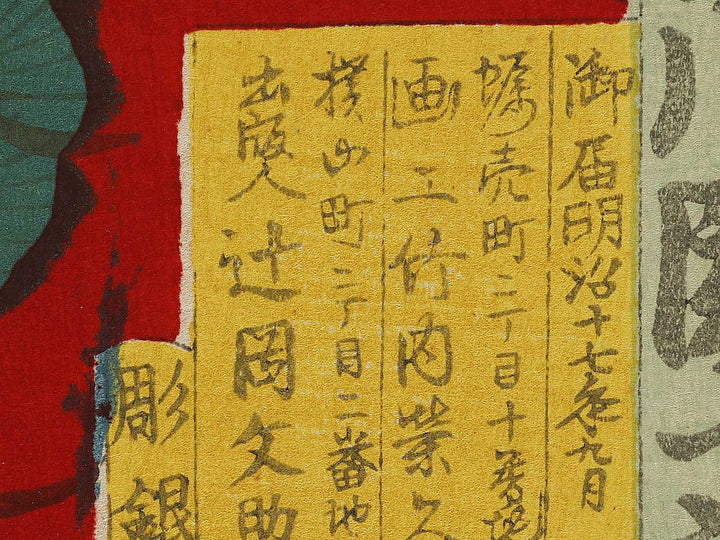 御届明治十七年九月
蛎売町二丁目十番地
画工竹内栄久
横山町三丁目二番地
出版人辻岡文助
彫銀